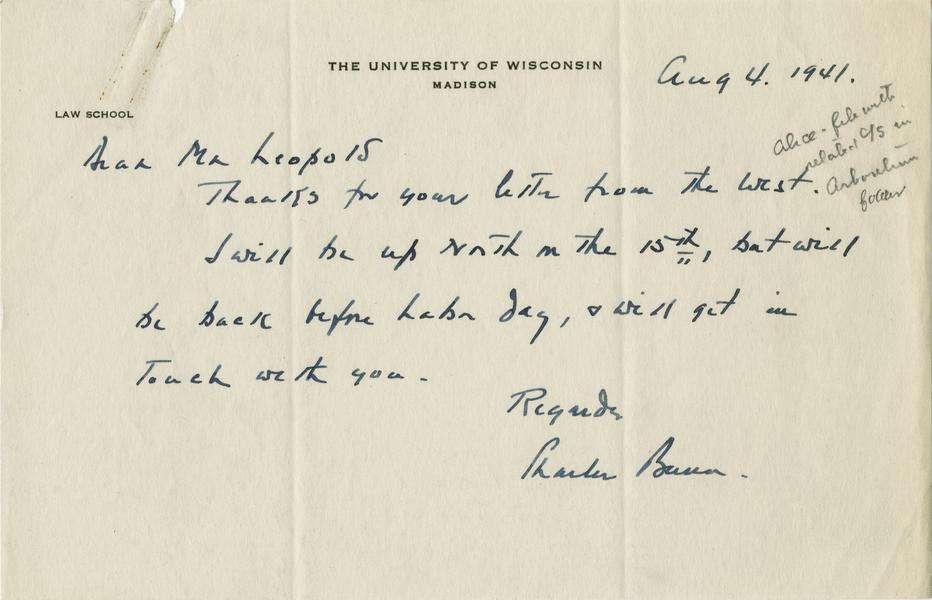 THE UNIVERSITY OF WISCONSIN
MADISON
Aug 4. 1941.
LAW SCHOOL
Alice - file with
related c/s in
Arboretum
folder
Dear Mr Leopold
Thanks for your letter from the West.
I will be up North on the 15th, but will
be back before Labor Day, & will get in
Touch with you.
Regards
Charles Bunn.